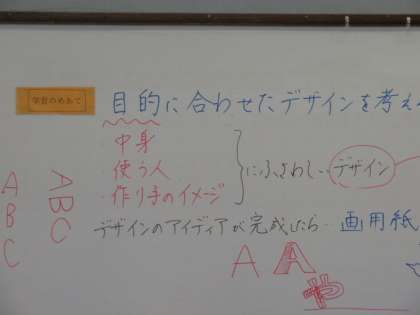 学習のめあて
目的に合わせたデザインを考え
中身
使う人
・作り手のイメージ
にふさわしい デザイン
デザインのアイディアが完成したら… 画用紙
ABC
ABC
A A
や